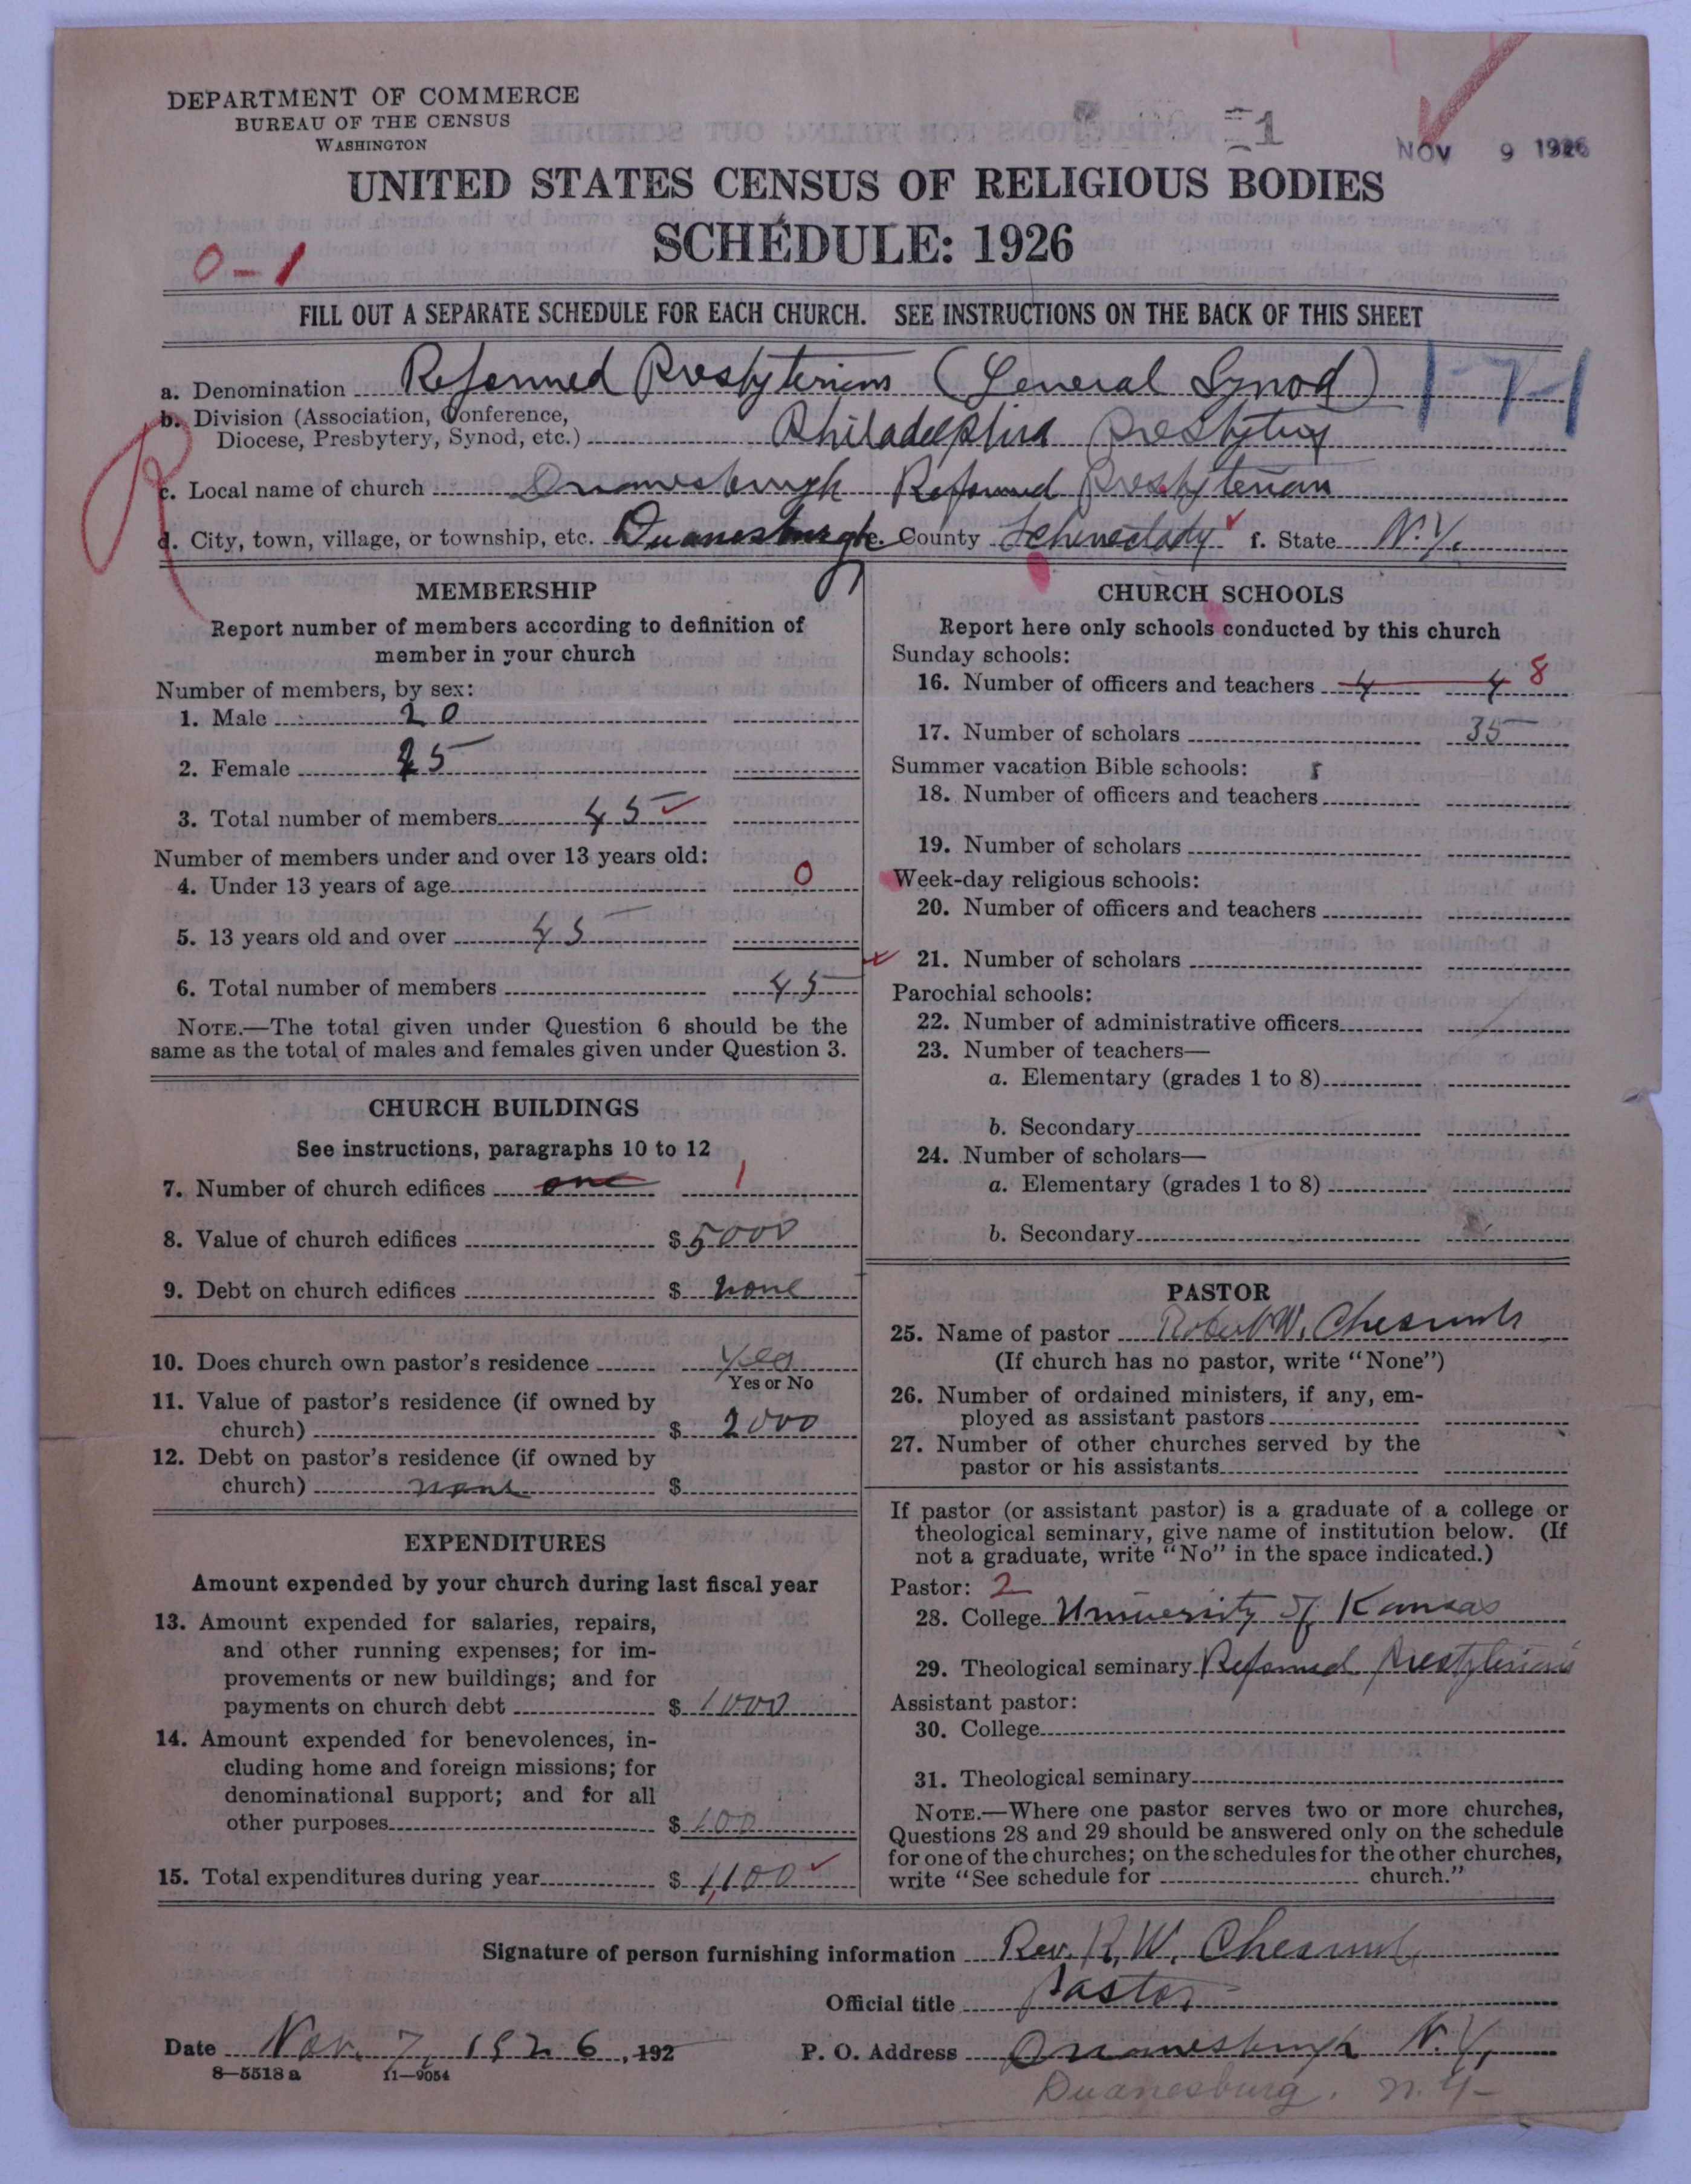 DEPARTMENT OF COMMERCE
BUREAU OF THE CENSUS
WASHINGTON
1
NOV 9 1926
UNITED STATES CENSUS OF RELIGIOUS BODIES
SCHEDULE: 1926
0-1
FILL OUT A SEPARATE SCHEDULE FOR EACH CHURCH. SEE INSTRUCTIONS ON THE BACK OF THIS SHEET
a. Denomination Reformed Presbyterians (General Synod) 1-7-1
b. Division (Association, Conference,
Diocese, Presbytery, Synod, etc.) Philadelphia Presbytery
c. Local name of church Duanesburgh Reformed Presbyterian
d. City, town, village, or township, etc. Duanesburgh e. County Schnectady f. State N.Y.
MEMBERSHIP
Report number of members according to definition of
member in your church
Number of members, by sex:
1. Male 20
2. Female 25
3. Total number of members 45
Number of members under and over 13 years old:
4. Under 13 years of age 0
5. 13 years old and over 45
6. Total number of members 45
NOTE.—The total given under Question 6 should be the
same as the total of males and females given under Question 3.
CHURCH BUILDINGS
See instructions, paragraphs 10 to 12
7. Number of church edifices one 1
8. Value of church edifices $ 5000
9. Debt on church edifices $ none
10. Does church own pastor's residence yes
Yes or No
11. Value of pastor's residence (if owned by
church) $ 2000
12. Debt on pastor's residence (if owned by
church) none $
EXPENDITURES
Amount expended by your church during last fiscal year
13. Amount expended for salaries, repairs,
and other running expenses; for im-
provements or new buildings; and for
payments on church debt $ 1000
14. Amount expended for benevolences, in-
cluding home and foreign missions; for
denominational support; and for all
other purposes $ 100
15. Total expenditures during year $ 1,100
CHURCH SCHOOLS
Report here only schools conducted by this church
Sunday schools:
16. Number of officers and teachers 4 4 8
17. Number of scholars 35
Summer vacation Bible schools:
18. Number of officers and teachers
19. Number of scholars
Week-day religious schools:
20. Number of officers and teachers
21. Number of scholars
Parochial schools:
22. Number of administrative officers
23. Number of teachers—
a. Elementary (grades 1 to 8)
b. Secondary
24. Number of scholars—
a. Elementary (grades 1 to 8)
b. Secondary
PASTOR
25. Name of pastor Robert W. Chesnut
(If church has no pastor, write "None")
26. Number of ordained ministers, if any, em-
ployed as assistant pastors
27. Number of other churches served by the
pastor or his assistants
If pastor (or assistant pastor) is a graduate of a college or
theological seminary, give name of institution below. (If
not a graduate, write "No" in the space indicated.)
Pastor: 2
28. College University of Kansas
29. Theological seminary Reformed Presbyterians
Assistant pastor:
30. College
31. Theological seminary
NOTE.—Where one pastor serves two or more churches,
Questions 28 and 29 should be answered only on the schedule
for one of the churches; on the schedules for the other churches,
write "See schedule for church."
Signature of person furnishing information Rev. R. W. Chesnut
Official title Pastor
Date Nov. 7, 1926, 192
P. O. Address Duanesburgh N.Y.
8-5518 a 11-9054
Duanesburg, N.Y.